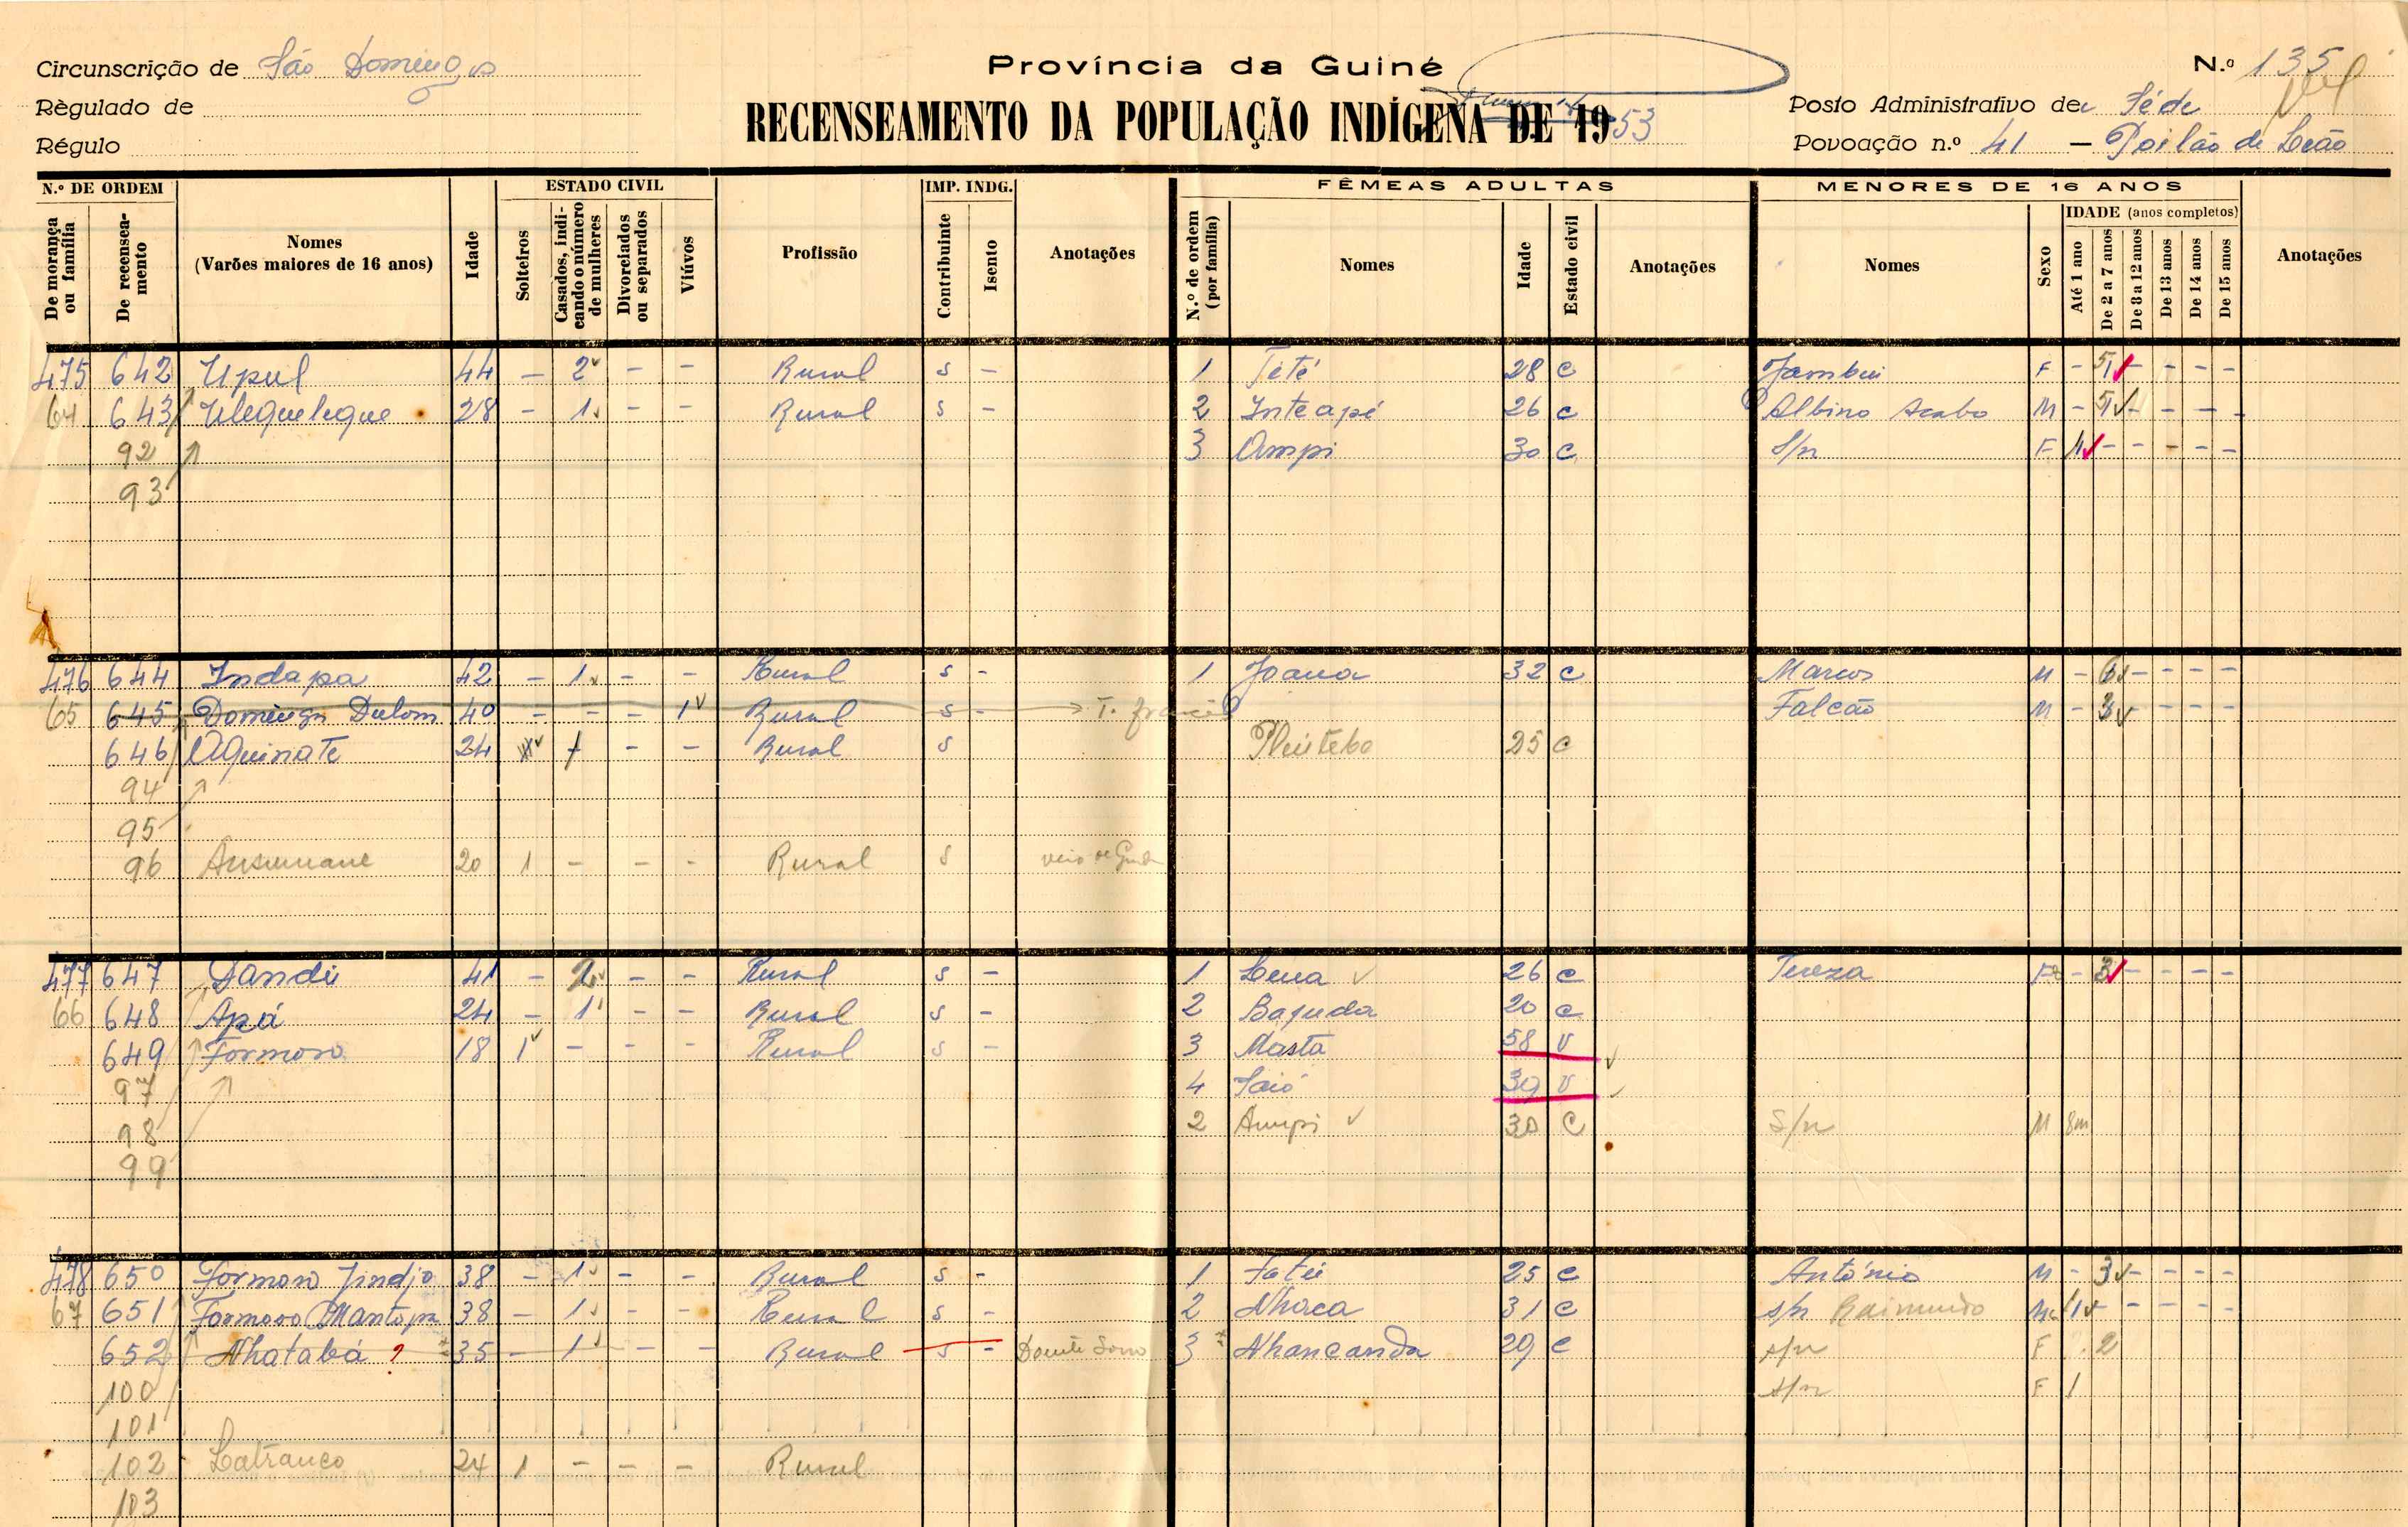 Circunscrição de São Domingos
Província da Guiné
N.º 135
Règulado de
RECENSEAMENTO DA POPULAÇÃO INDÍGENA DE 1953
Posto Administrativo de Séde
Régulo
Povoação n.º 41 — Poilão de Leão
N.º DE ORDEM
ESTADO CIVIL
IMP. INDG.
FÊMEAS ADULTAS
MENORES DE 16 ANOS
De morança ou família
De recensea-mento
Nomes (Varões maiores de 16 anos)
Idade
Solteiros
Casados, indi-cando o número de mulheres
Divorciados ou separados
Viúvos
Profissão
Contribuinte
Isento
Anotações
N.º de ordem (por família)
Nomes
Idade
Estado civil
Anotações
Nomes
Sexo
IDADE (anos completos)
Até 1 ano
De 2 a 7 anos
De 8 a 12 anos
De 13 anos
De 14 anos
De 15 anos
Anotações
475 642 Upul 44 — 2 — — Rural s — 1 Teté 28 c Jambui F — 5 — — — —
64 643 Uleguelegue 28 — 1 — — Rural s — 2 Inteapé 26 c Albino M — 5 — — — —
92 3 Ampi 30 c s/n F 1 — — — — —
93
476 644 Indapa 42 — 1 — — Rural s — 1 Joana 32 c Marcos M — 6 — — — —
65 645 Domingos 40 — — — 1 Rural s — Falcão M — 3
646 Aquinate 24 1 — — Rural s 25 c
94
95
96 Ansumane 20 1 — — — Rural s veio de
477 647 Dandi 41 — 2 — — Rural s — 1 Lena 26 c Tereza F — 3 — — — —
66 648 Apá 24 — 1 — — Rural s — 2 Bajuda 20 c
649 Formoso 18 1 — — — Rural s — 3 Masta 58 v
97 4 Saió 39 v
98 2 Ampi 30 c s/n M 8m
99
478 650 Formoso Jindjo 38 — 1 — — Rural s — 1 Fatú 25 c António M — 3 — — — —
67 651 Formoso Mantopa 38 — 1 — — Rural s — 2 Nhaca 31 c s/n Raimundo M 1 — — — — —
652 Nhatabá ? 35 — 1 — — Rural s — 3 Nhancanda 29 c s/n F 2
100 s/n F 1
101
102 Latranco 24 1 — — — Rural
103